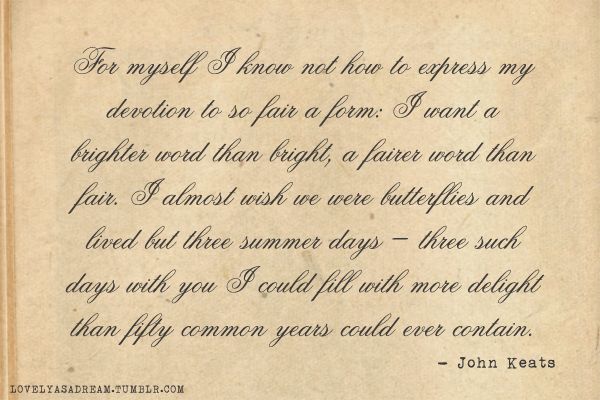 For myself I know not how to express my
devotion to so fair a form: I want a
brighter word than bright, a fairer word than
fair. I almost wish we were butterflies and
lived but three summer days – three such
days with you I could fill with more delight
than fifty common years could ever contain.
– John Keats
LOVELYASADREAM.TUMBLR.COM